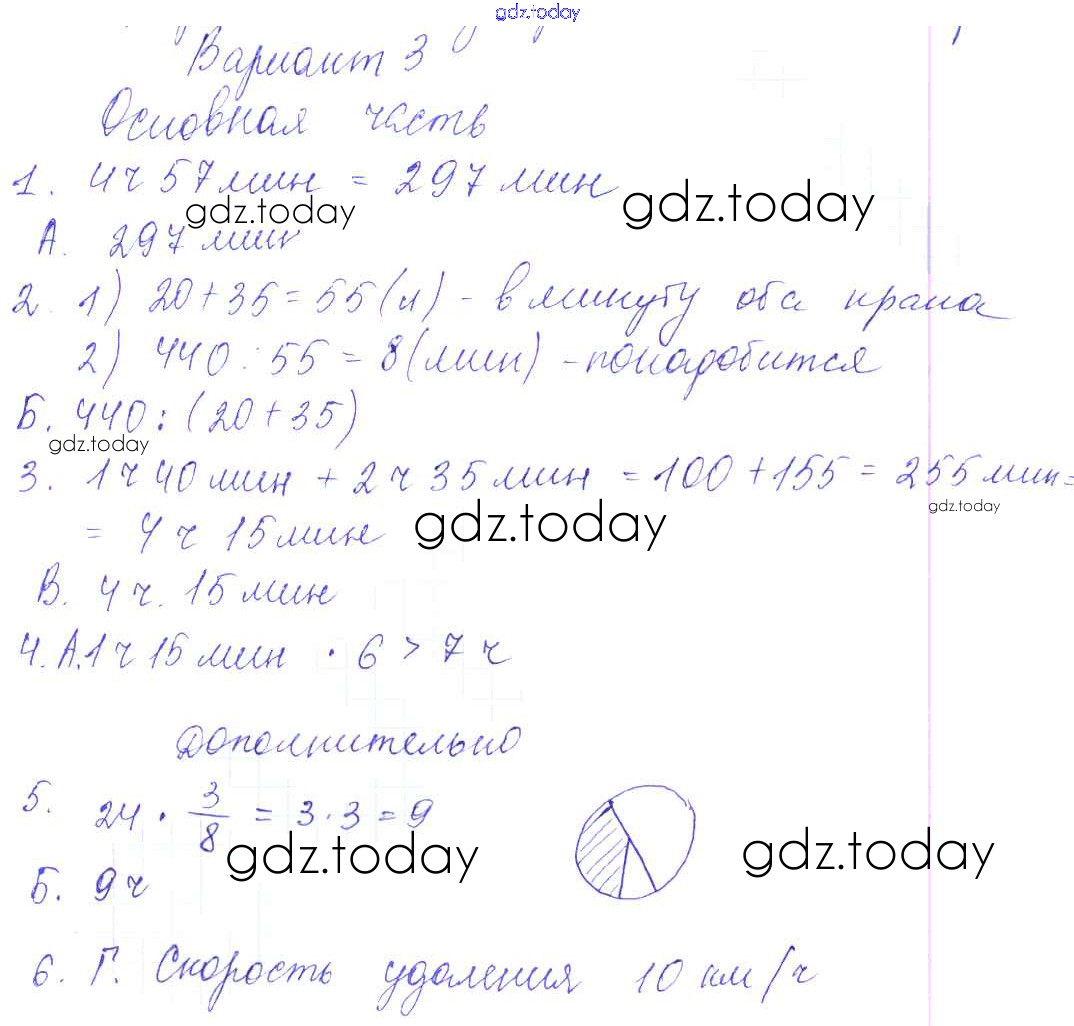 gdz.today
Вариант 3
Основная часть
1. 4ч 57 мин = 297 мин
gdz.today gdz.today
А. 297 мин
2. 1) 20 + 35 = 55 (л) - в минуту оба крана
2) 440 : 55 = 8 (мин) - понадобится
Б. 440 : (20 + 35)
gdz.today
3. 1ч 40 мин + 2ч 35 мин = 100 + 155 = 255 мин =
gdz.today
= 4ч 15 мин
gdz.today
В. 4ч. 15 мин
4. А. 1ч 15 мин · 6 > 7ч
Дополнительно
5. 24 · 3/8 = 3 · 3 = 9
gdz.today gdz.today
Б. 9ч
6. Г. Скорость удаления 10 км/ч